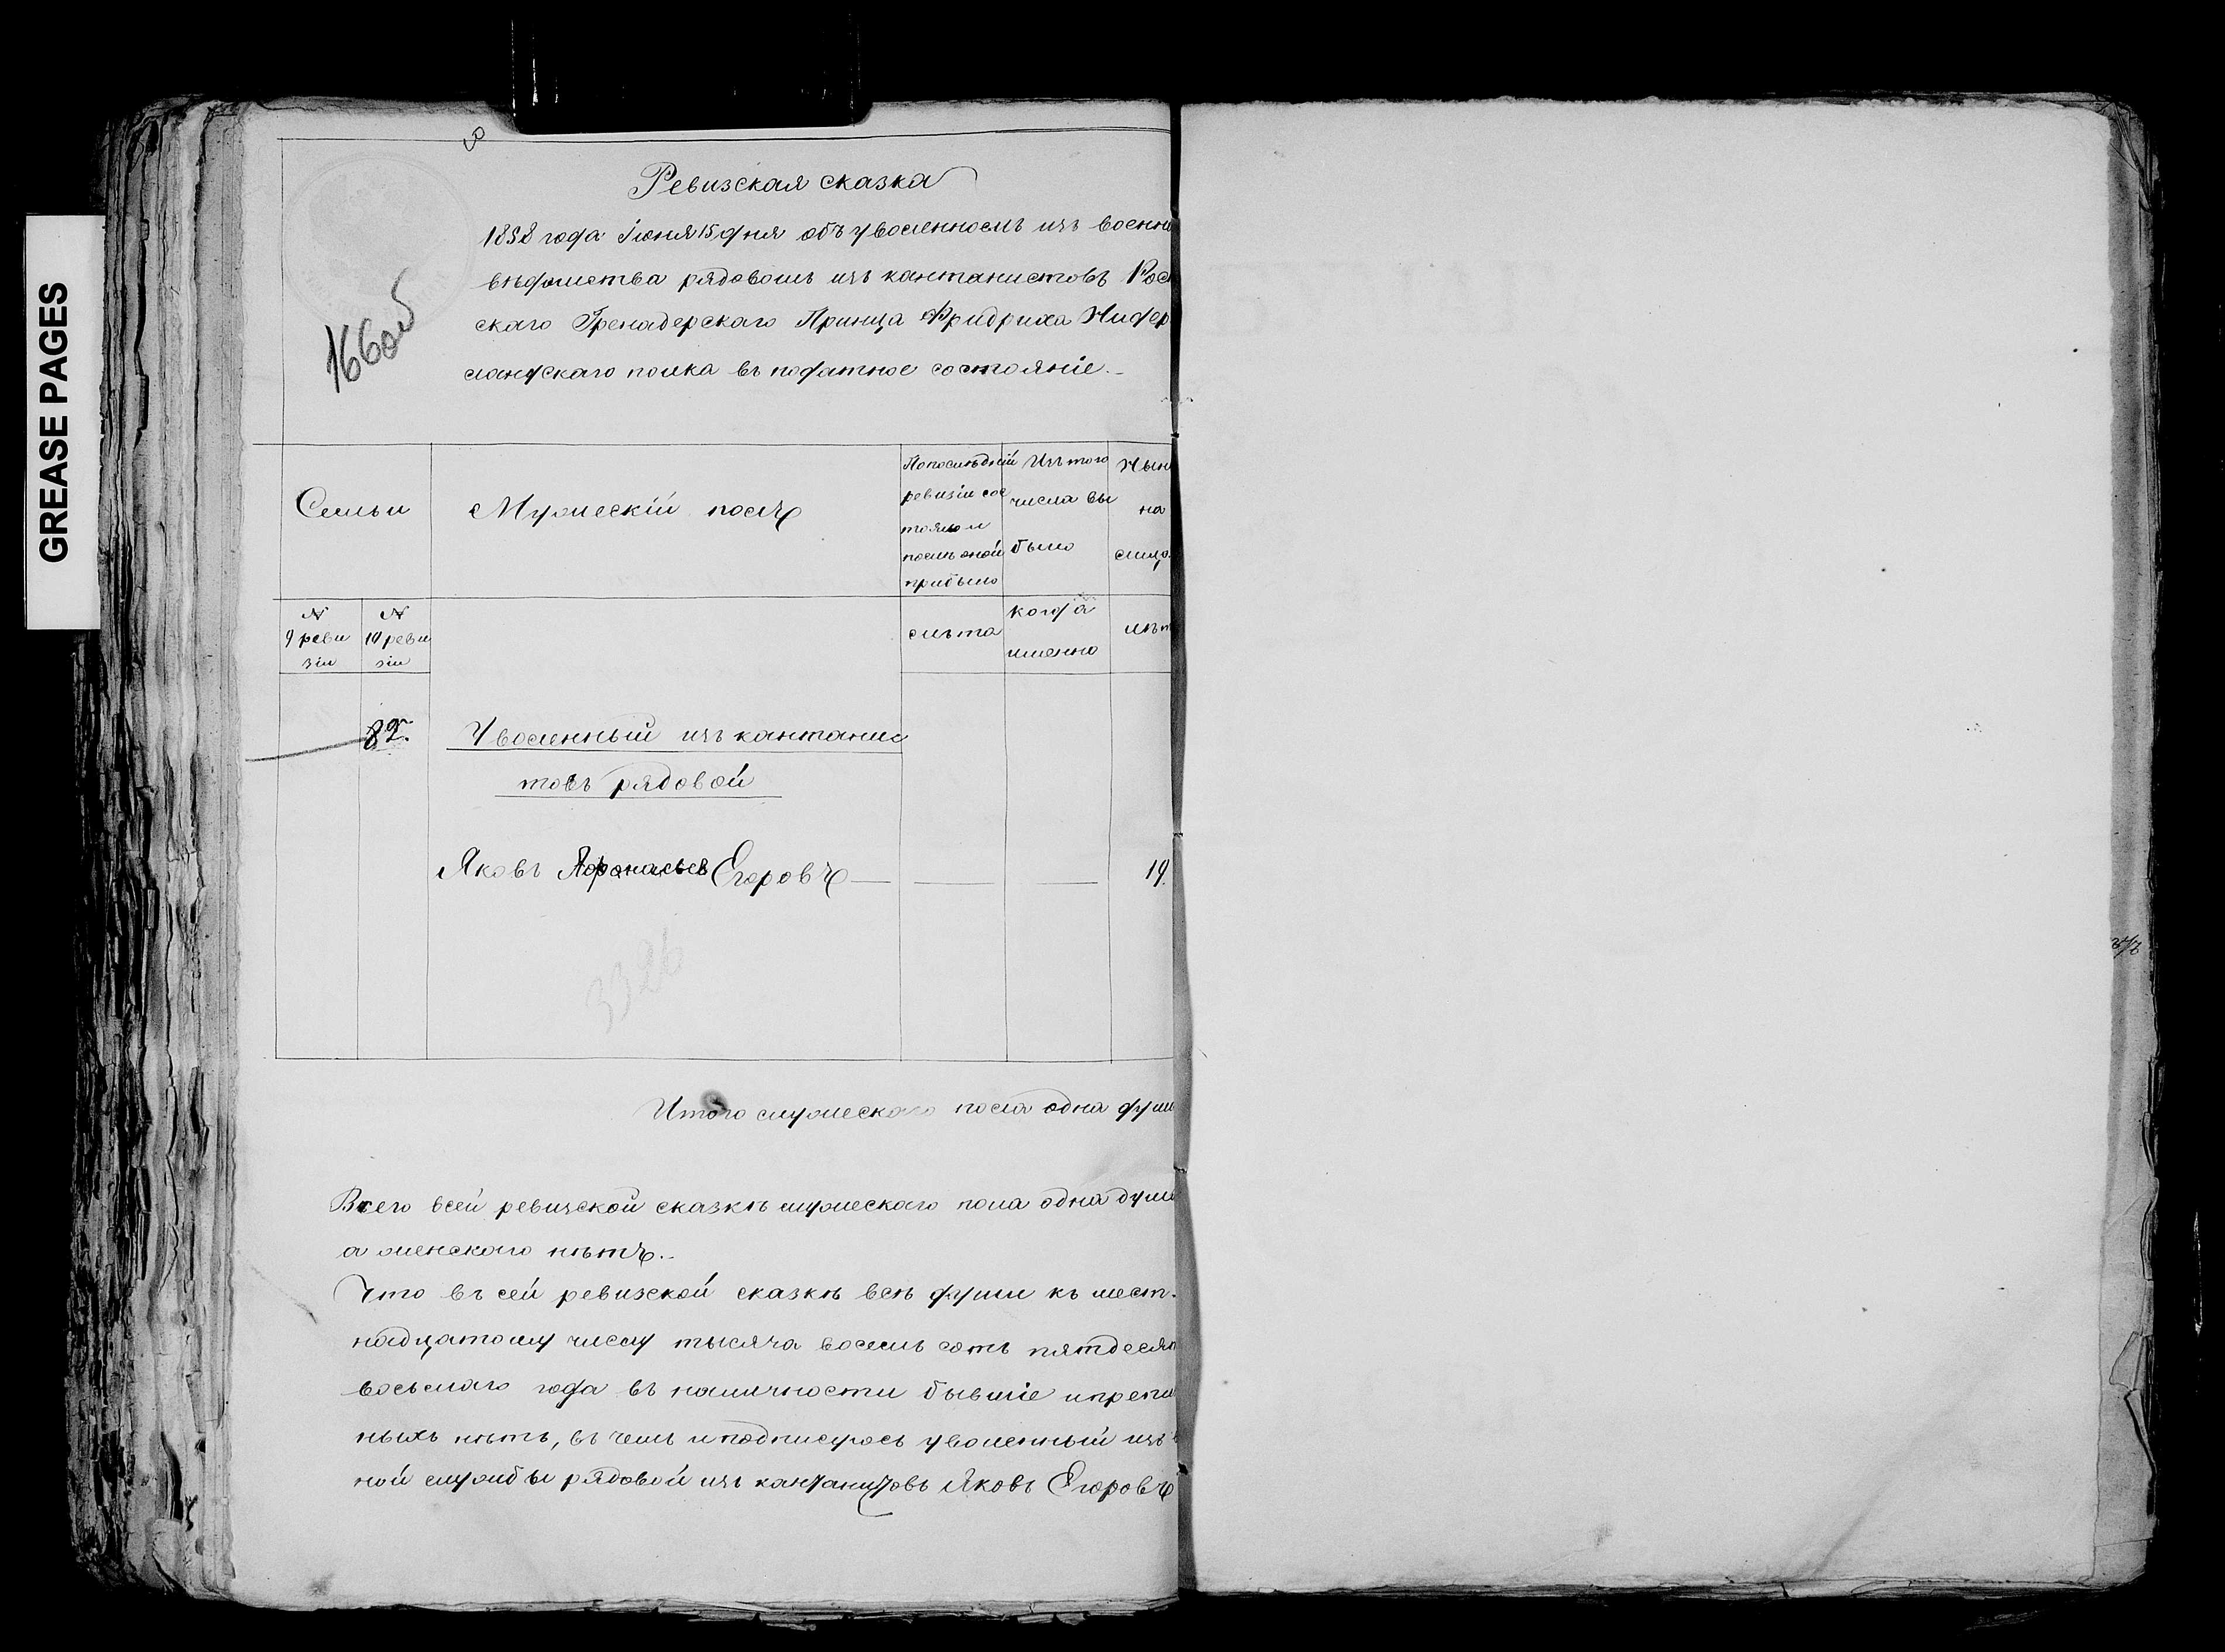 GREASE PAGES
166об
Ревизская сказка
1858 года Іюня 15 дня объ уволенномъ изъ военна
вѣдомства рядовомъ изъ кантанистовъ Рос
скаго Гренадерскаго Принца Фридриха Нидер
ландскаго полка въ податное состояніе.
Семьи
Мужескій полъ
По последней
ревизіи сос
тояло и
послѣ оной
прибыло
Изъ того
числа вы
было
Нын
на
лицо
N
9 реви
зіи
N
10 реви
зіи
слѣта
когда
именно
лѣт
82.
Уволенный изъ кантанис
товъ рядовой
Яковъ Афонасьев Егоровъ — — — 19.
3326
Итого мужескаго пола одна душ
Всего всей ревизской сказкѣ мужескаго пола одна душ
а женскаго нѣтъ.
Что въ сей ревизской сказкѣ всѣ души къ шест-
надцатому числу тысяча восемь сотъ пятдесят
восьмаго года въ наличности бывшіе и
ныхъ нѣтъ, въ чемъ и подписуюсь уволенный изъ в
ной службы рядовой изъ кантанистовъ Яковъ Егоровъ